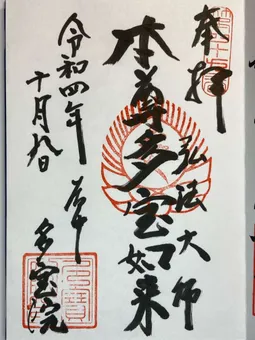 奉拝
弘法大師
本尊多宝如来
令和四年
十月九日
多宝院